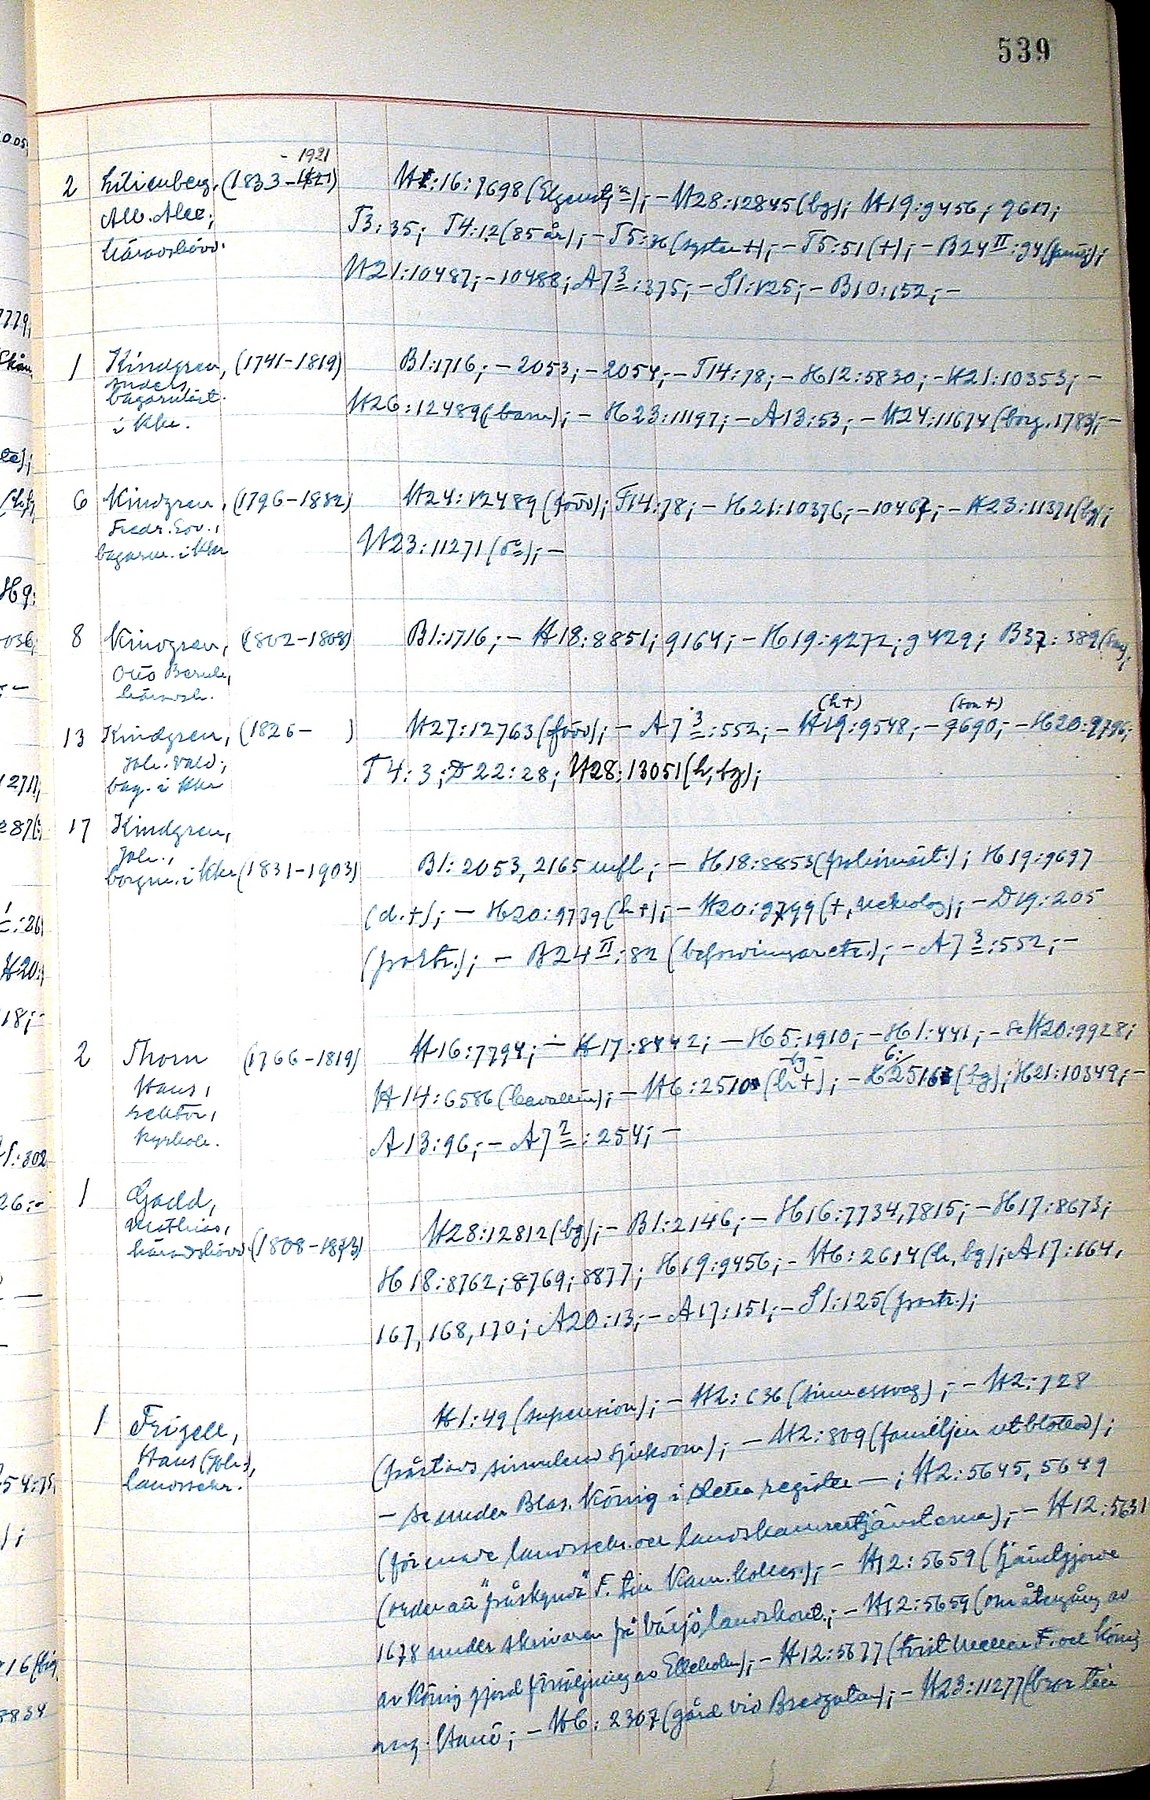 539
- 1921
2 Lilienberg, (1833-1821) H1:16:7698 (Elgenstj.a); - H28:12845 (bg); H19:9456; 9617;
Alb. Alex; T3:35; T4:12 (85 år); - T5:36 (syster +); - T5:51 (+); - B24 II:94
häradshövd. H21:10487; - 10488; A7 3:375; - S1:125; - B10:152; -
1 Kindgren, (1741-1819) B1:1716; - 2053; - 2054; - T14:78; - H12:5830; - H21:10353; -
bagarmäst. H26:12489 (barn); - H23:11197; - A13:53; - H24:11674 (borg. 1783); -
i Khn.
6 Kindgren, (1796-1882) H24:12489 (född); T14:78; - H21:10376; - 10467; - H23:11371 (bg);
Fredr. Edv., H23:11271 (do); -
bagarm. i Khn
8 Kindgren, (1802-1808) B1:1716; - H18:8851; 9164; - H19:9272; 9429; B37:389
Otto Bernh,
häradsh.
(h +) (son +)
13 Kindgren, (1826- ) H27:12763 (född); - A7 3:552; - H19:9548; - 9690; - H20:9796;
Joh. Vald; T4:3; D22:28; H28:13051 (h, bg);
bag. i Khn
17 Kindgren,
Joh.,
borgm. i Khn (1831-1903) B1:2053, 2165 infl; - H18:8853 (polismäst.); H19:9697
(d. +); - H20:9739 (h +); - H20:9799 (+, nekrolog); - D19:205
(porträ.); - B24 II:82 (befordringar etc.); - A7 3:552; -
2 Thorn (1766-1819) H16:7794; - H17:8442; - H5:1910; - H1:441; - se H20:9928;
Hans, H14:6586 (Cavallin); - H6:2510 (h +); - H6:2516 (bg); H21:10349; -
rektor, A13:96; - A7 2:254; -
kyrkoh.
1 Gadd,
Mathias, H28:12812 (bg); - B1:2146; - H16:7734, 7815; - H17:8673;
häradshövd. (1808-1873) H18:8762; 8769; 8877; H19:9456; - H6:2614 (h, bg); A17:164,
167, 168, 170; A20:13; - A17:151; - S1:125 (porträ.);
1 Frisell, H1:49 (supension); - H2:636 (sinnessvag); - H2:728
Hans (Joh.), (påstods simulera sjukdom); - H2:809 (familjen utblottad);
landssekr. - se under Blas. König i detta register - ; H2:5645, 5649
(förenade landssekr. och landskamrertjänsterna); - H12:5631
(order att "påskynda" F. till Kam. Kolleg.); - H12:5659 (tjänstgjorde
1678 under skrivaren på Växjö landskont.; - H12:5659 (om återgång av
av König gjord försäljning av Elleholm); - H12:5677 (tvist mellan F. och König
ang. Hanö; - H6:2307 (gård vid Bredgatan); - H23:11277 (bror till